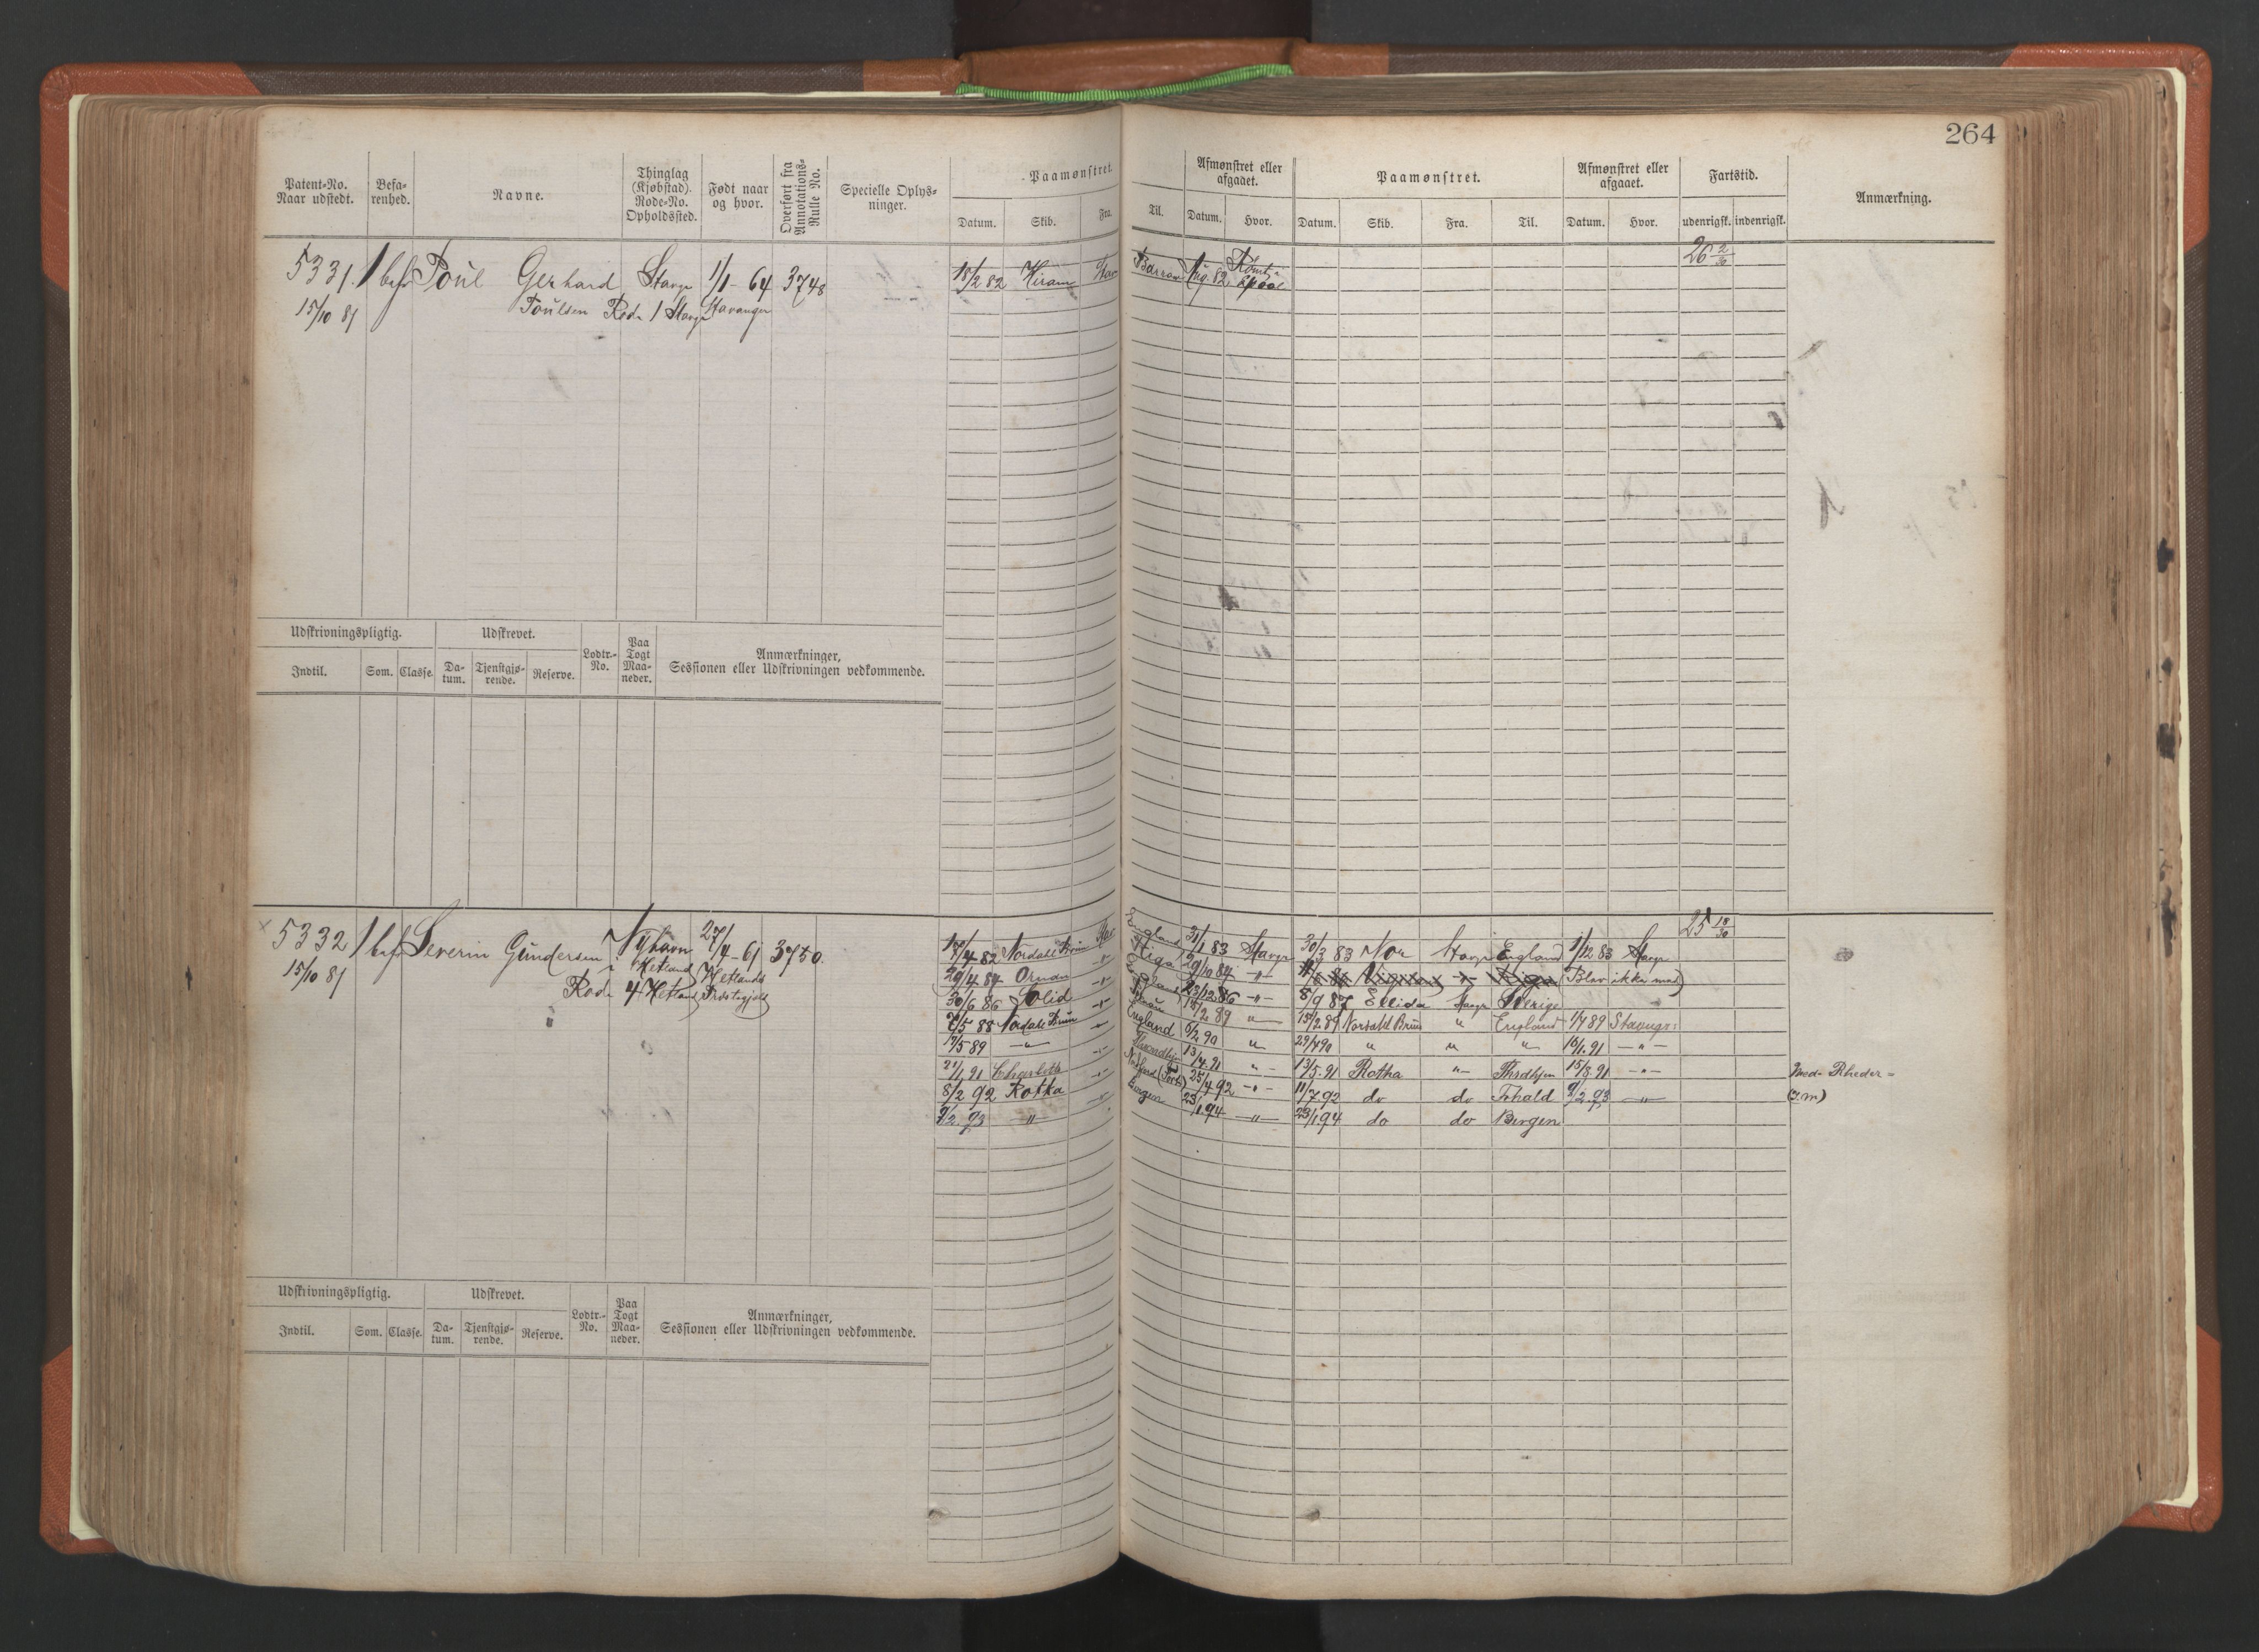 264
Patent-No. Naar udstedt.
Befa-renhed.
Navne.
Thinglag (Kjøbstad). Rode-No. Opholdssted.
Født naar og hvor.
Overført fra Annotations-Rulle No.
Specielle Oplys-ninger.
Paamønstret.
Datum. Skib. Fra. Til.
Afmønstret eller afgaaet.
Datum. Hvor.
Paamønstret.
Datum. Skib. Fra. Til.
Afmønstret eller afgaaet.
Datum. Hvor.
Fartstid.
udenrigsk. indenrigsk.
Anmærkning.
26 2/30
5331. 1 bef Poul Gerhard Stavgr 1/1 - 64 3748 18/2 82 Hiram Stav Barrow Aug. 82
15/10 81 Poulsen Rode 1 Stavgr Stavanger
Udskrivningspligtig. Udskrevet. Lodtr.-No. Paa Togt Maa-neder. Anmærkninger, Sessionen eller Udskrivningen vedkommende.
Indtil. Som. Classe. Da-tum. Tjenstgjø-rende. Reserve.
25 18/30
5332 1 bef Severin Gundersen Nyhavn 27/4 - 61 3750.
15/10 81 i Hetland Hetlands
Rode 4 Hetland Præstegjeld
17/4 82 Nordahl Brun Stav England 31/1 83 Stavgr 30/3 83 Nor Stavgr England 1/12 83 Stavgr
29/4 84 Ornan -"- Riga 29/10 84 -"- (Blev ikke med)
30/6 86 Solid -"- England 23/12 86 -"- 8/9 87 Ellida Stavgr Sverige
7/5 88 Nordahl Brun -"- 12/2 89 " 15/2 89 Nordahl Brun " England 1/4 89 Stavngr:
17/5 89 -"- England 6/2 90 " 29/4 90 " " " 16/1. 91 -"-
21/1 91 Charlotte -"- Throndhjem 13/4 91 "- 13/5. 91 Rotha "- Thrdhjem 15/8. 91 -"- Med. Rheder=
8/2 92 Rotha 25/4 92 -"- 11/7. 92 do do 9/2. 93 -"- (I. m)
9/2. 93 -"- Bergen 23/1 94 -"- 23/1 94 do do Bergen
Udskrivningspligtig. Udskrevet. Lodtr.-No. Paa Togt Maa-neder. Anmærkninger, Sessionen eller Udskrivningen vedkommende.
Indtil. Som. Classe. Da-tum. Tjenstgjø-rende. Reserve.